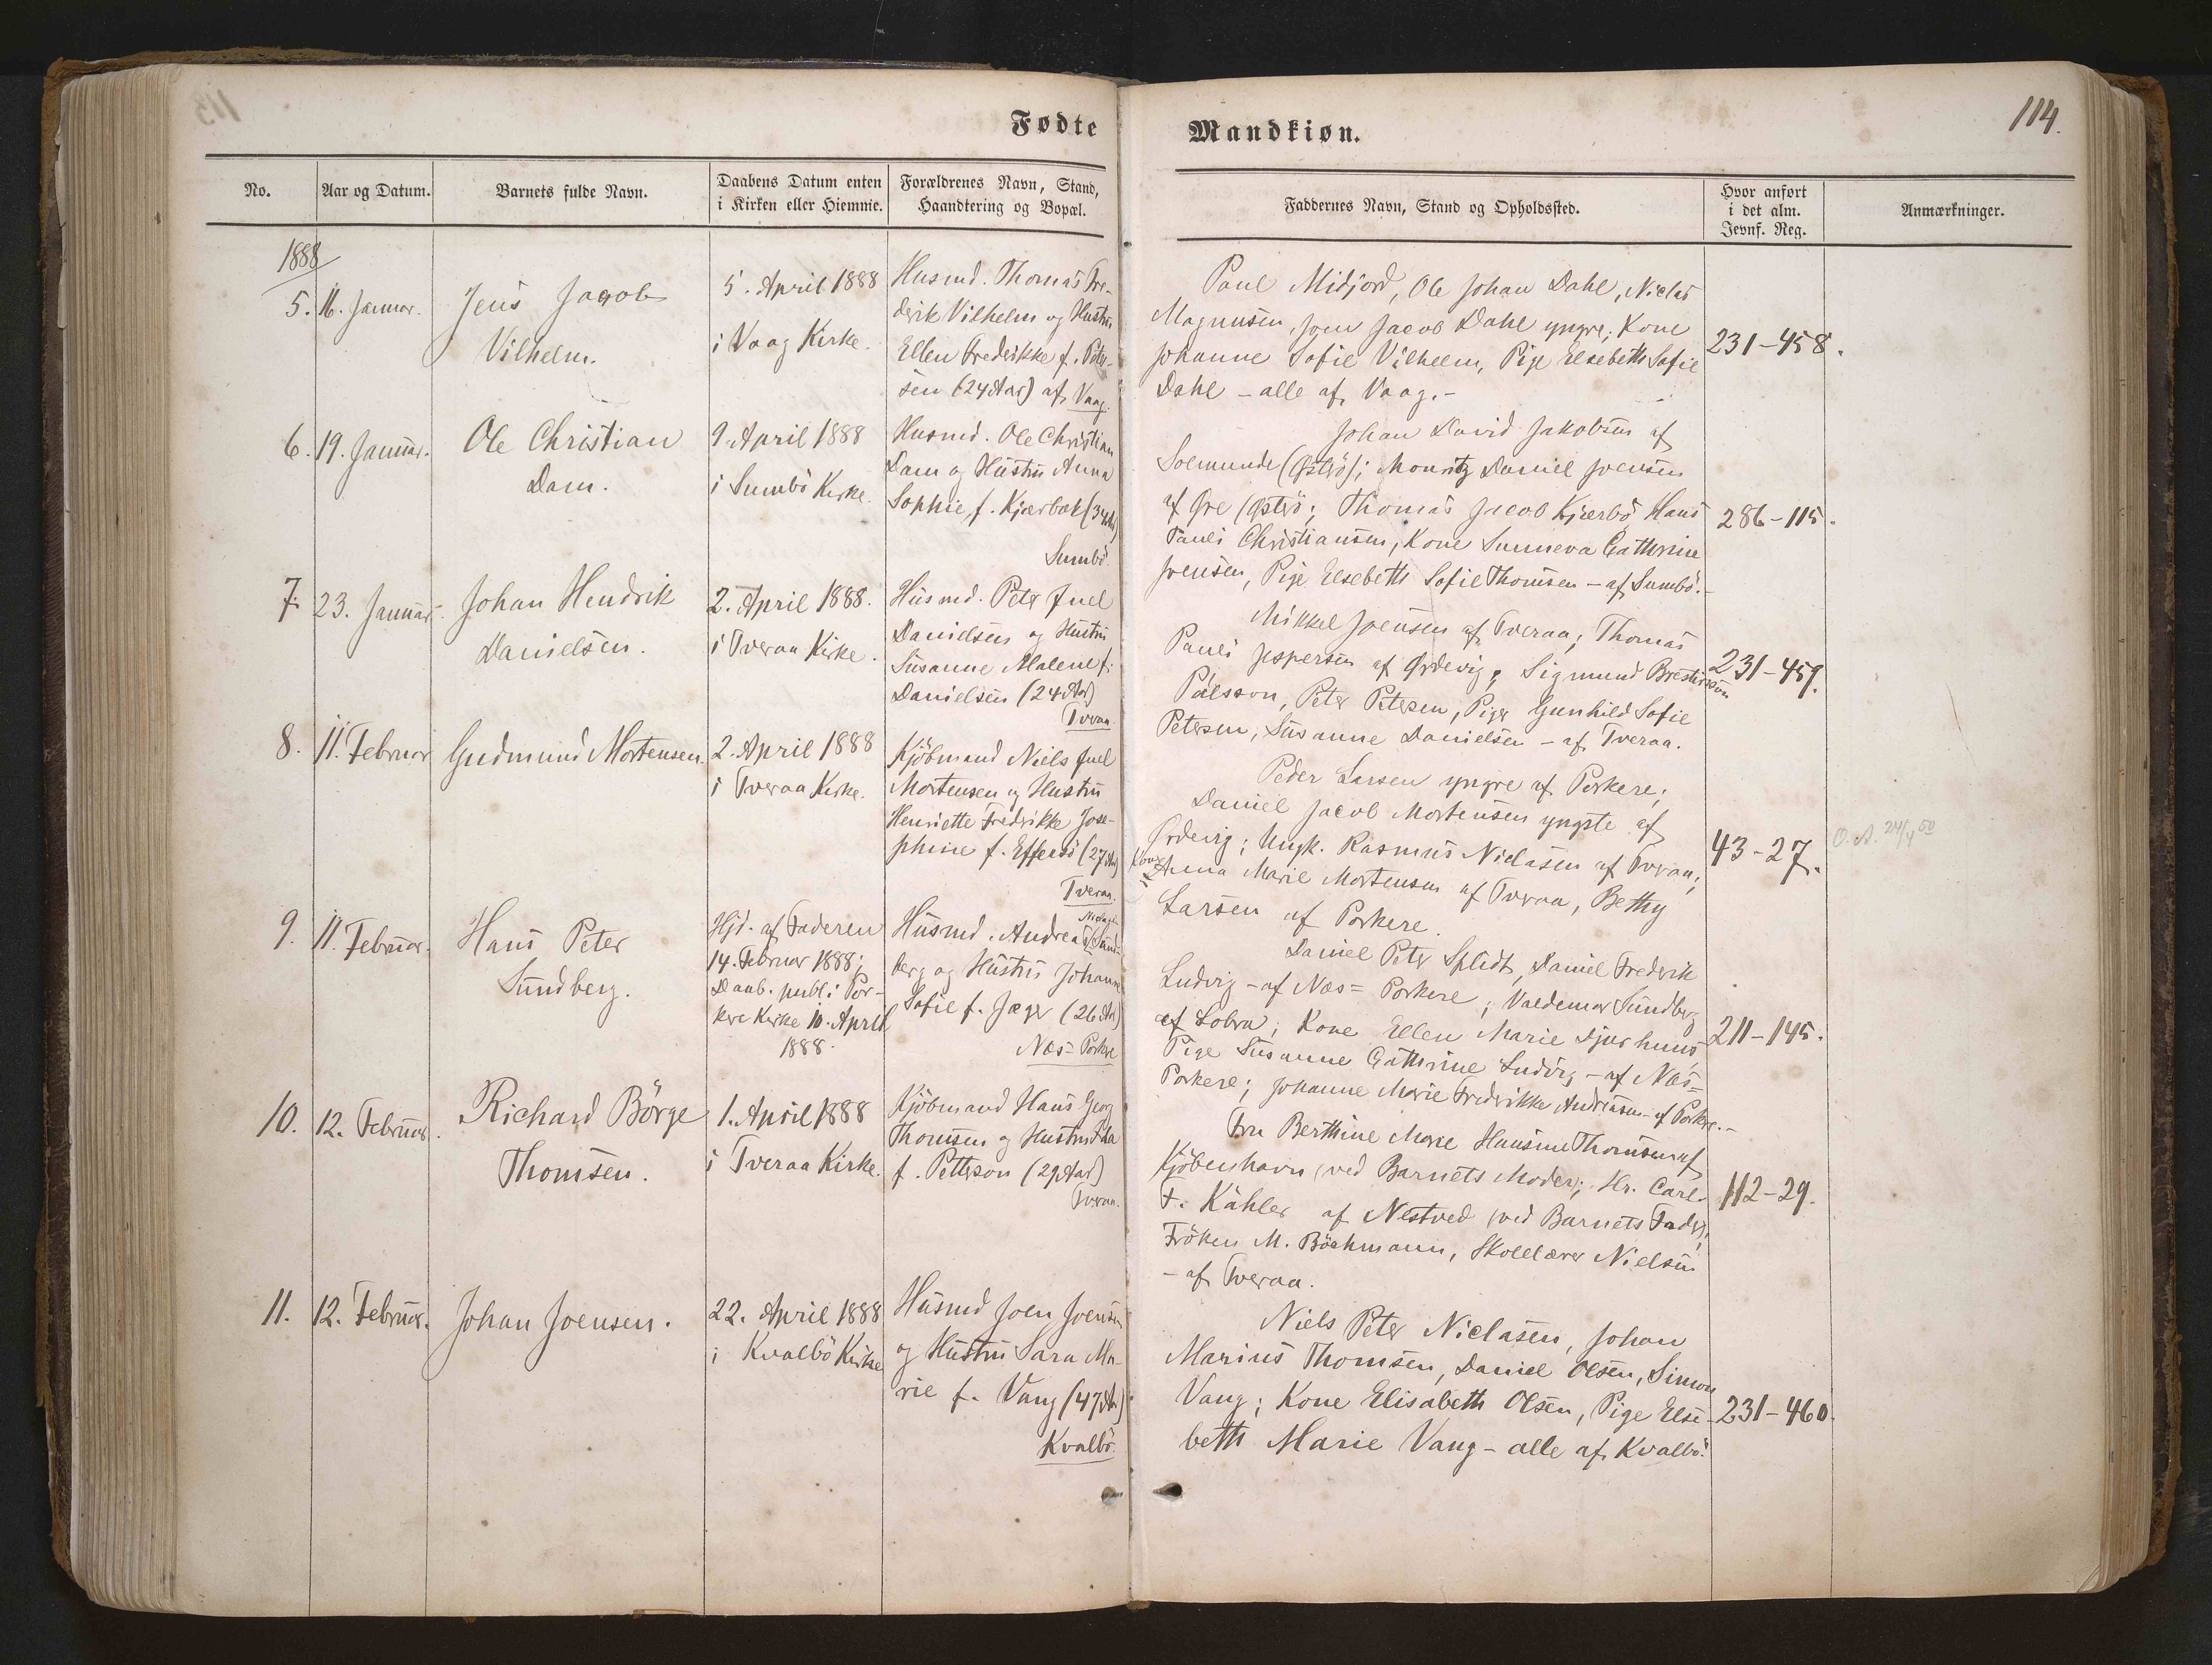 Fødte
Mandkiøn.
114.
No.
Aar og Datum.
Barnets fulde Navn.
Daabens Datum enten
i Kirken eller Hiemme.
Forældrenes Navn, Stand,
Haandtering og Bopæl.
Faddernes Navn, Stand og Opholdssted.
Hvor anført
i det alm.
Jevnf. Reg.
Anmærkninger.
1888
5.
16. Januar.
Jens Jacob
Vilhelm.
5. April 1888
i Vaag Kirke.
Husmd. Thomas Fre-
derik Vilhelm og Hustru
Ellen Fredrikke f. Peter-
sen (24 Aar) af Vaag.
Poul Midjord, Ole Johan Dahl, Niclas
Magnussen, Joen Jacob Dahl yngre; Kone
Johanne Sofie Vilhelm, Pige Elsebeth Sofie
Dahl - alle af Vaag.-
231-458.
6.
19. Januar.
Ole Christian
Dam.
9. April 1888
i Sumbö Kirke.
Husmd. Ole Christian
Dam og Hustru Anna
Sophie, f. Kjærbæk (34 Aar)
Sumbö.
Johan David Jakobsen af
Solmunde (Øströ); Mouritz Daniel Joensen
af Øre (Øströ; Thomas Jacob Kjærbö, Hans
Pauli Christiansen, Kone Sunneva Cathrine
Joensen, Pige Elsebeth Sofie Thomsen - af Sumbö.-
286-115.
7.
23. Januar.
Johan Hendrik
Danielsen.
2. April 1888.
i Tveraa Kirke.
Husmd. Peter Juel
Danielsen og Hustru
Susanne Malene f.
Danielsen (24 Aar)
Tveraa.
Mikkel Joensen af Tveraa; Thomas
Pauli Jespersen af Ørdevig; Sigmund Brestirsson
Pálsson, Peter Petersen, Piger Gunhild Sofie
Petersen, Susanne Danielsen - af Tveraa.
231-459.
8.
11. Februar
Gudmund Mortensen.
2. April 1888
i Tveraa Kirke.
Kjöbmand Niels Juel
Mortensen og Hustru
Henriette Fredrikke Jose-
phine f. Effersö (27 Aar)
Tveraa.
Peder Larsen yngre af Porkere;
Daniel Jacob Mortensen yngste af
Ørdevig; Ungk. Rasmus Niclasen af Tveraa;
Kone
Anna Marie Mortensen af Tveraa, Bethy
Larsen af Porkere.
43-27.
O. A. 24/4 50
9.
11. Februar.
Hans Peter
Sundberg.
Hjd. af Faderen
14. Februar 1888;
Daab. publ. i Por-
kere Kirke 10. April
1888.
Husmd. Andreas Sund-
berg og Hustru Johanne
Sofie f. Jæger (26 Aar)
Næs= Porkere
Daniel Peter Splidt, Daniel Frederik
Ludvig - af Næs= Porkere; Valdemar Sundberg
af Lobra; Kone Ellen Marie Djurhuus,
Pige Susanne Cathrine Ludvig - af Næs=
Porkere; Johanne Marie Fredrikke Andreasen - af Porkere.-
211-145.
10.
12. Februar.
Richard Börge
Thomsen.
1. April 1888
i Tveraa Kirke.
Kjöbmand Hans Georg
Thomsen og Hustru Ida
f. Petterson (29 Aar)
Tveraa.
Fru Berthine Marie Hansine Thomsen af
Kjöbenhavn (ved Barnets Moder; Hr. Carl
F. Kähler af Nestved (ved Barnets Fader),
Fröken M. Böckmann, Skolelærer Nielsen
- af Tveraa.
112-29.
11.
12. Februar.
Johan Joensen.
22. April 1888
i Kvalbö Kirke
Husmd Joen Joensen
og Hustru Sara Ma-
rie f. Vang (47 Aar)
Kvalbö.
Niels Peter Niclasen, Johan
Marius Thomsen, Daniel Olsen, Simon
Vang; Kone Elisabeth Olsen, Pige Else-
beth Marie Vang - alle af Kvalbö.
231-460.